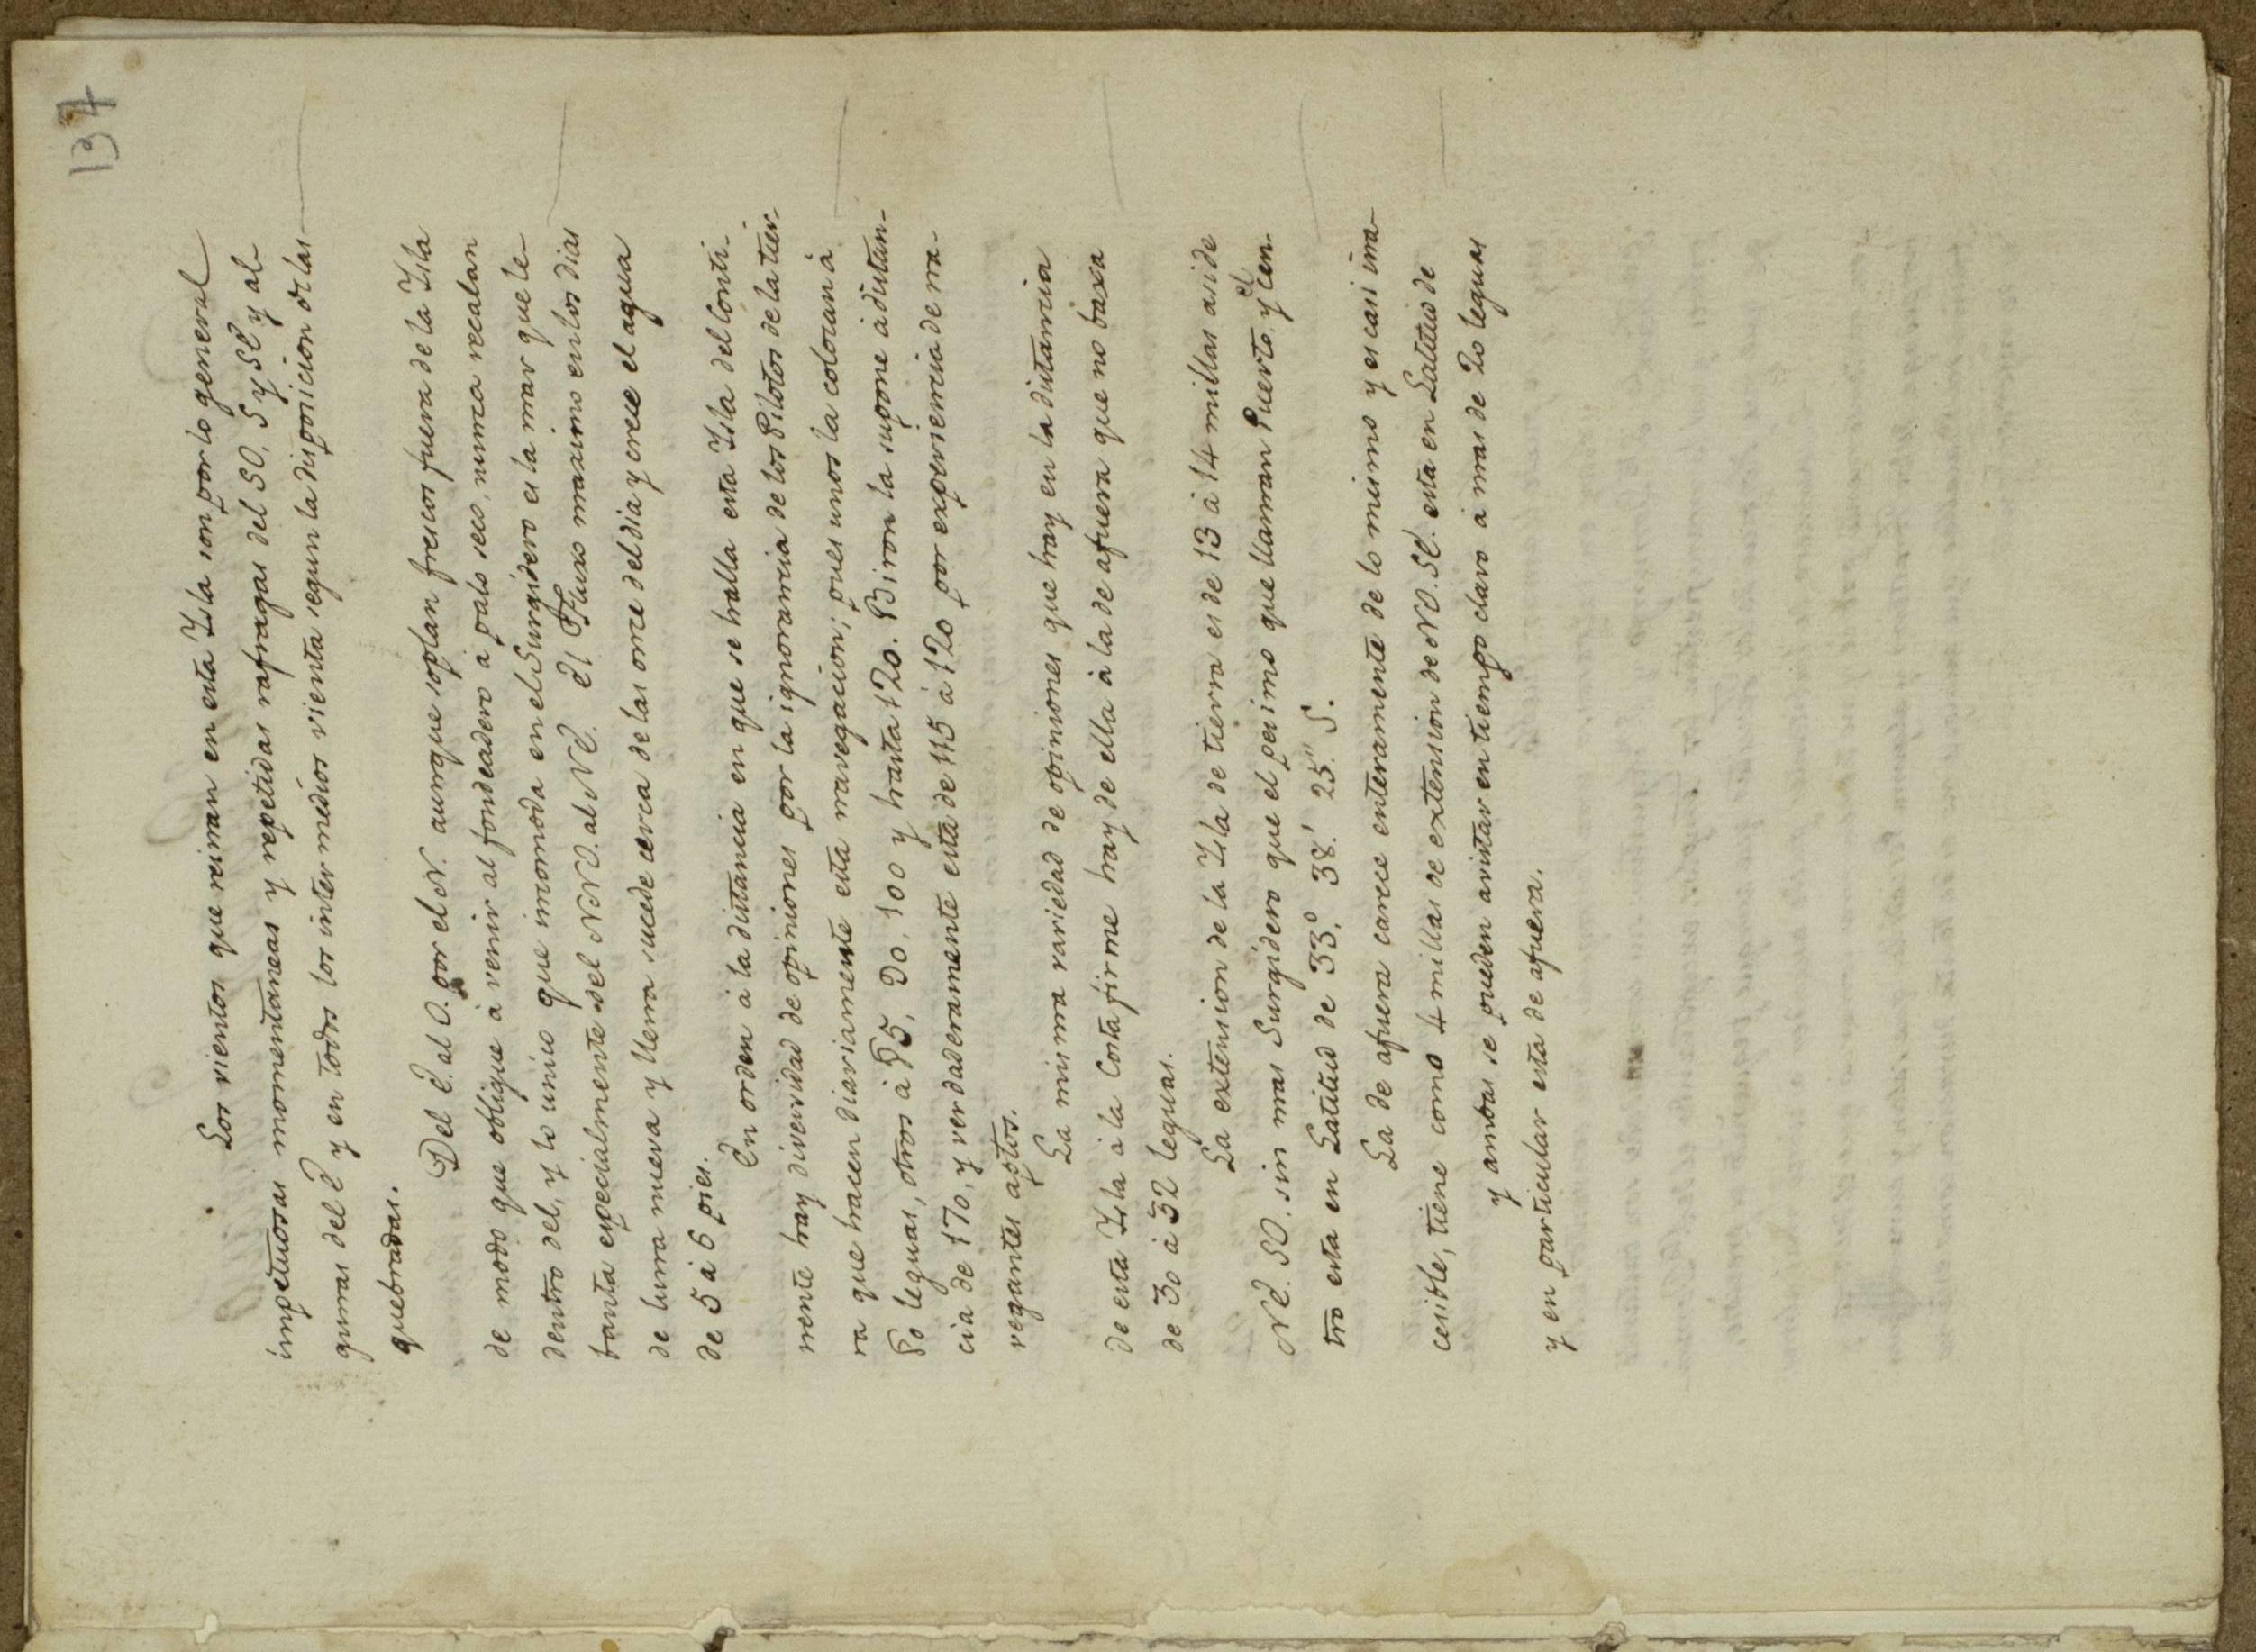 137
Los vientos que reinan en esta Isla son por lo general
impetuosas momentaneas y repetidas rafragas del SO, S y SE y al-
gunas del E y en todos los intermedios vienta segun la disposicion de las
quebradas.
Del E. al O. por el N. aunque soplan frescos fuera de la Isla
de modo que obligue à venir al fondeadero à palo seco, nunca recalan
dentro del, y lo unico que incomoda en el Surgidero es la mar que le-
banta especialmente del NNO. al NE. El Fluxo maximo en los dias
de luna nueva y llena sucede cerca de las once del dia y crece el agua
de 5 à 6 pies.
En orden à la distancia en que se halla esta Isla del Conti-
nente hay diversidad de opiniones por la ignorancia de los Pilotos de la tier-
ra que hacen diariamente esta navegacion; pues unos la colocan à
80 leguas, otros à 85, 90, 100 y hasta 120. Biron la supone à distan-
cia de 170, y verdaderamente esta de 115 à 120 por experiencia de na-
vegantes aptos.
La misma variedad de opiniones que hay en la distancia
de esta Isla à la Costa firme hay de ella à la de afuera que no baxa
de 30 à 32 leguas.
La extension de la Isla de tierra es de 13 à 14 millas aside
NE. SO. sin mas Surgidero que el pesimo que llaman Puerto, y el cen-
tro esta en Latitud de 33.° 38.' 25." S.
La de afuera carece enteramente de lo mismo y es casi ina-
cesible, tiene como 4 millas de extension de NO. SE. esta en Latitud de
y ambas se pueden avistar en tiempo claro à mas de 20 leguas
y en particular esta de afuera.